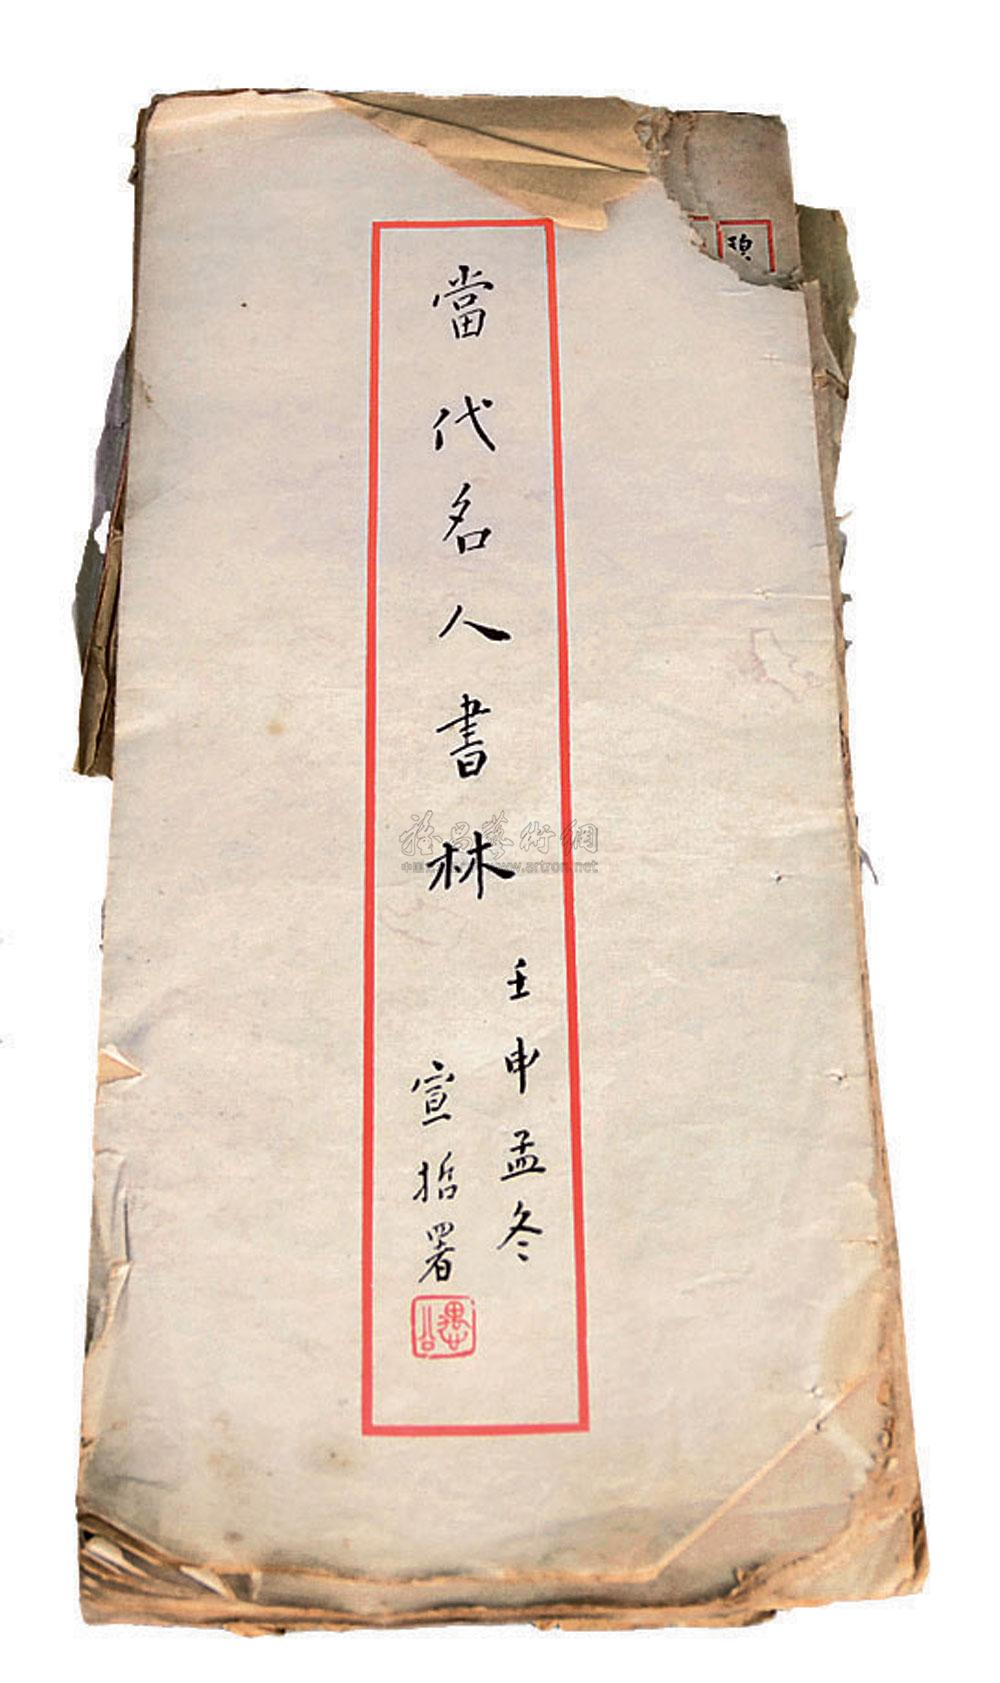 當代名人書林
壬申孟冬
宣哲署
愚公
雅昌藝術網
www.artron.net